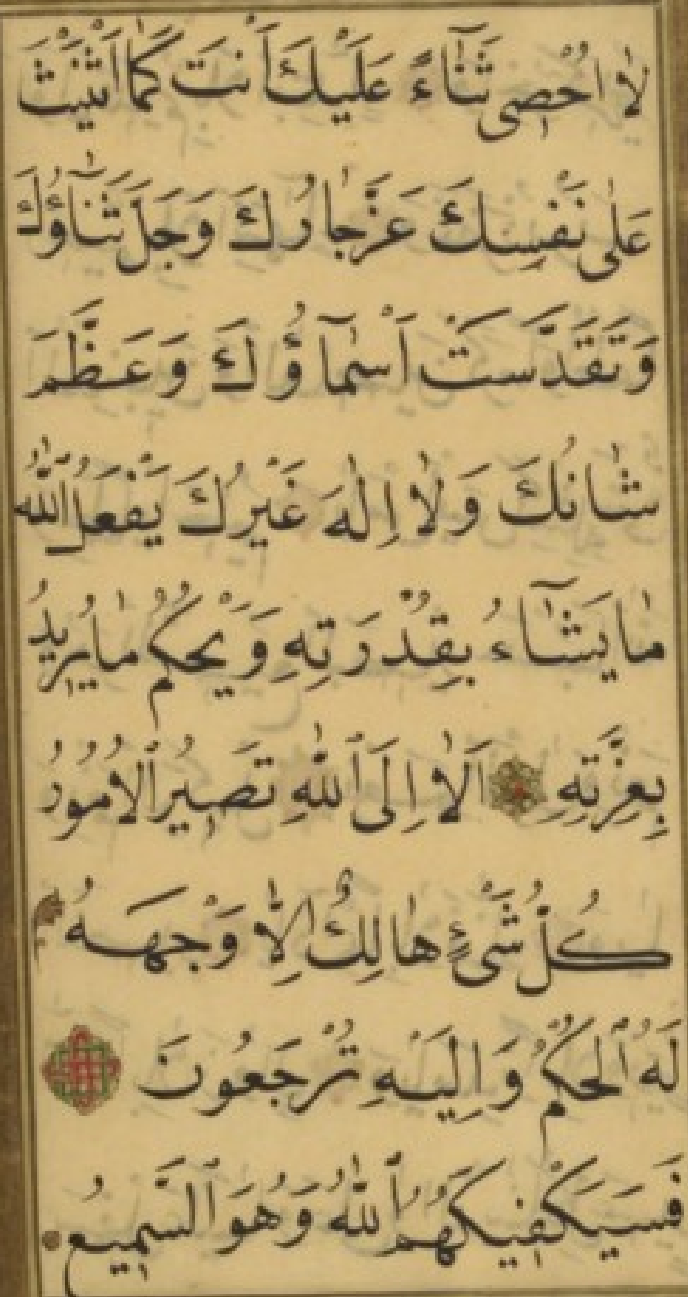 لَا اُحْصِى ثَنَٓاءً عَلَيْكَ اَنْتَ كَمَٓا اَثْنَيْتَ
عَلٰى نَفْسِكَ عَزَّ جَارُكَ وَجَلَّ ثَنَٓاؤُكَ
وَتَقَدَّسَتْ اَسْمَٓاؤُكَ وَعَظَّمَ
شَانُكَ وَلَا اِلٰهَ غَيْرُكَ يَفْعَلُ اللّٰهُ
مَا يَشَٓاءُ بِقُدْرَتِهِ وَيَحْكُمُ مَا يُرِيدُ
بِعِزَّتِهِ اَلَا اِلَى اللّٰهِ تَصِيرُ الْاُمُورُ
كُلُّ شَىْءٍ هَالِكٌ اِلَّا وَجْهَهُ
لَهُ الْحُكْمُ وَاِلَيْهِ تُرْجَعُونَ
فَسَيَكْفِيكَهُمُ اللّٰهُ وَهُوَ السَّمِيعُ